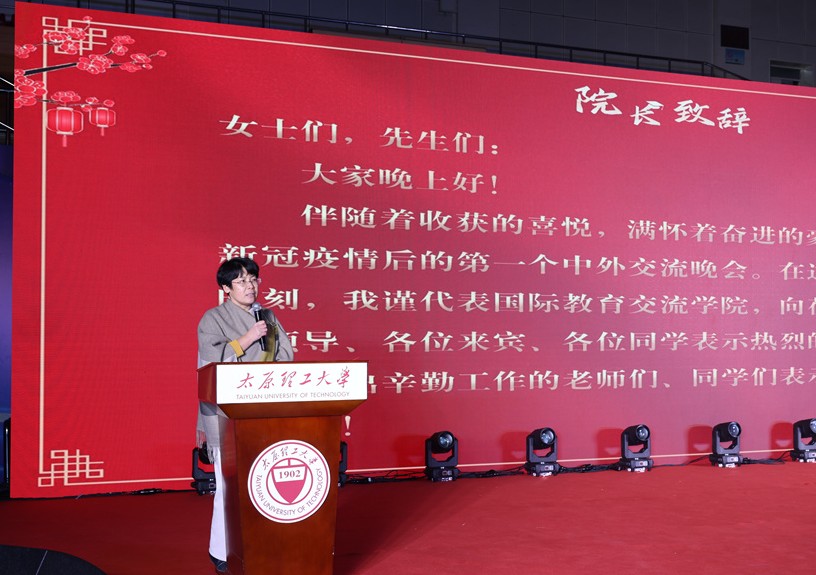 院长致辞
女士们，先生们：
大家晚上好！
伴随着收获的喜悦，满怀着奋进的
新冠疫情后的第一个中外交流晚会。在
刻，我谨代表国际教育交流学院，向
领导、各位来宾、各位同学表示热烈的
出辛勤工作的老师们、同学们表示
！
太原理工大学
TAIYUAN UNIVERSITY OF TECHNOLOGY
太原理工大学
1902
TAIYUAN UNIVERSITY OF TECHNOLOGY